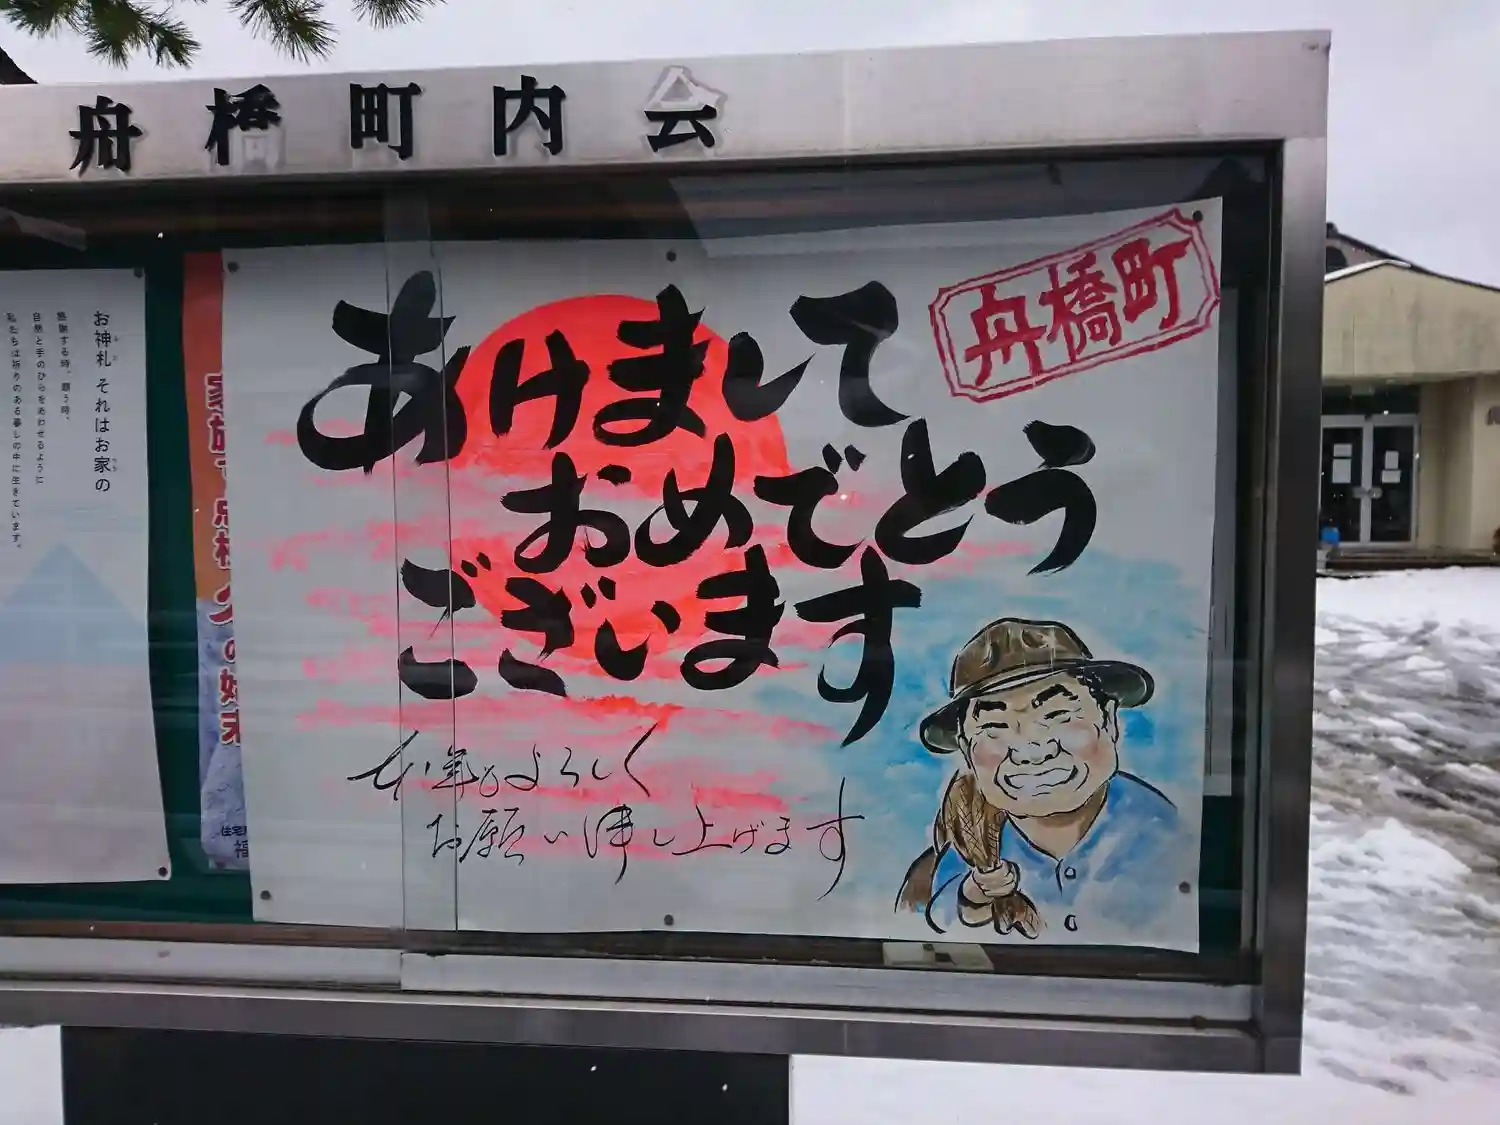 舟橋町内会
舟橋町
あけまして
おめでとう
ございます
本年もよろしく
お願い申し上げます
お神札 それはお家の
感謝する時、願う時、
自然と手のひらをあわせるように
私たちは祈りのある暮しの中に生きています。
の始末
住宅
福